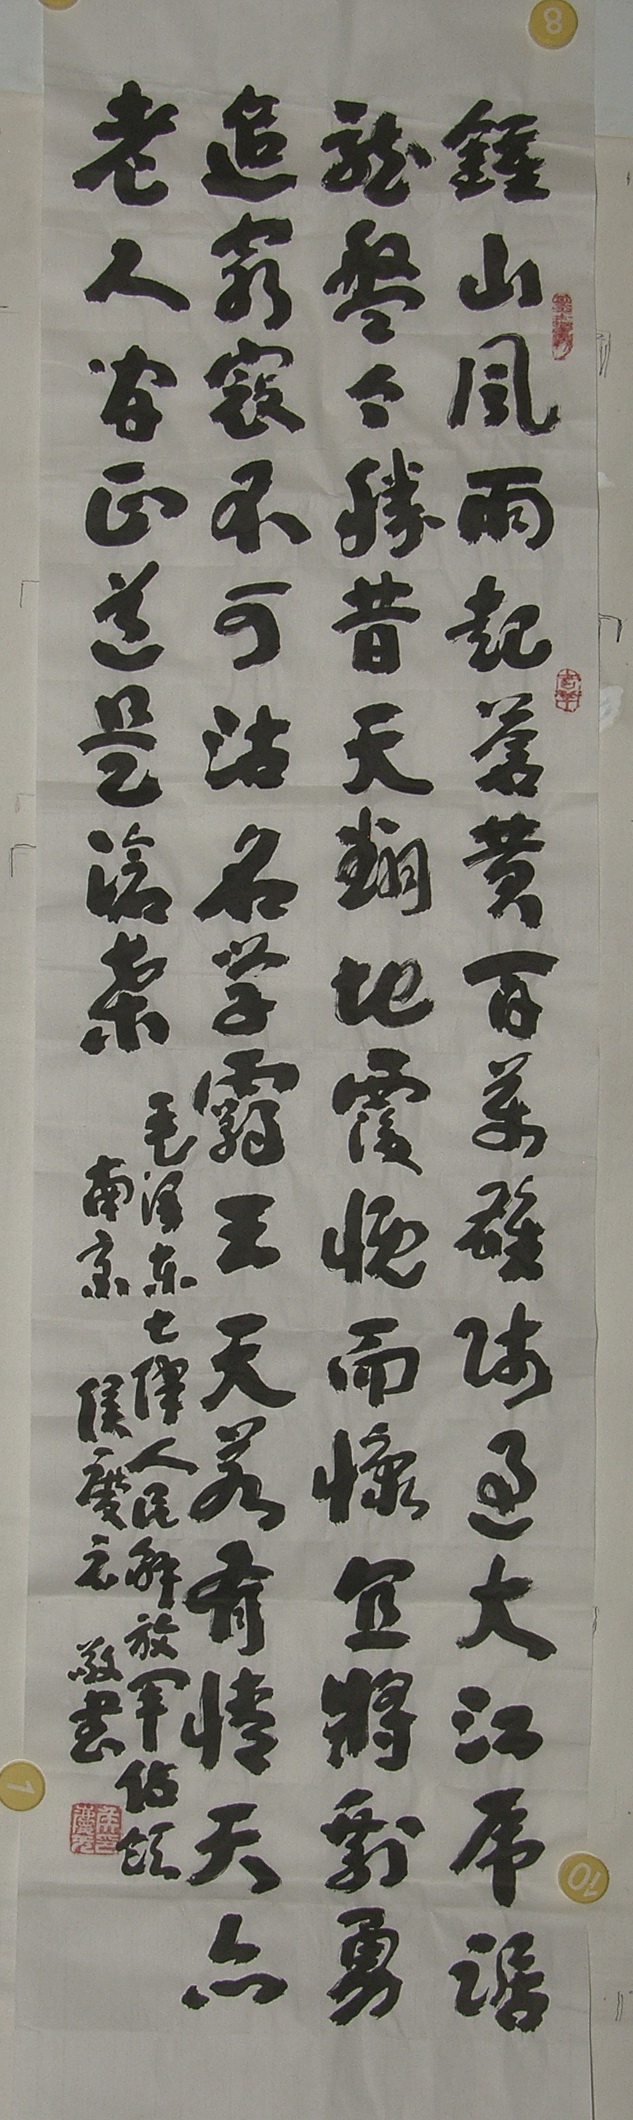 鍾山風雨起蒼黃百萬雄师過大江虎踞
龙盤今勝昔天翻地覆慨而慷宜將剩勇
追窮寇不可沽名学霸王天若有情天亦
老人间正道是滄桑
毛泽东七律人民解放军佔领
南京 侯慶云 敬書
8
10
1